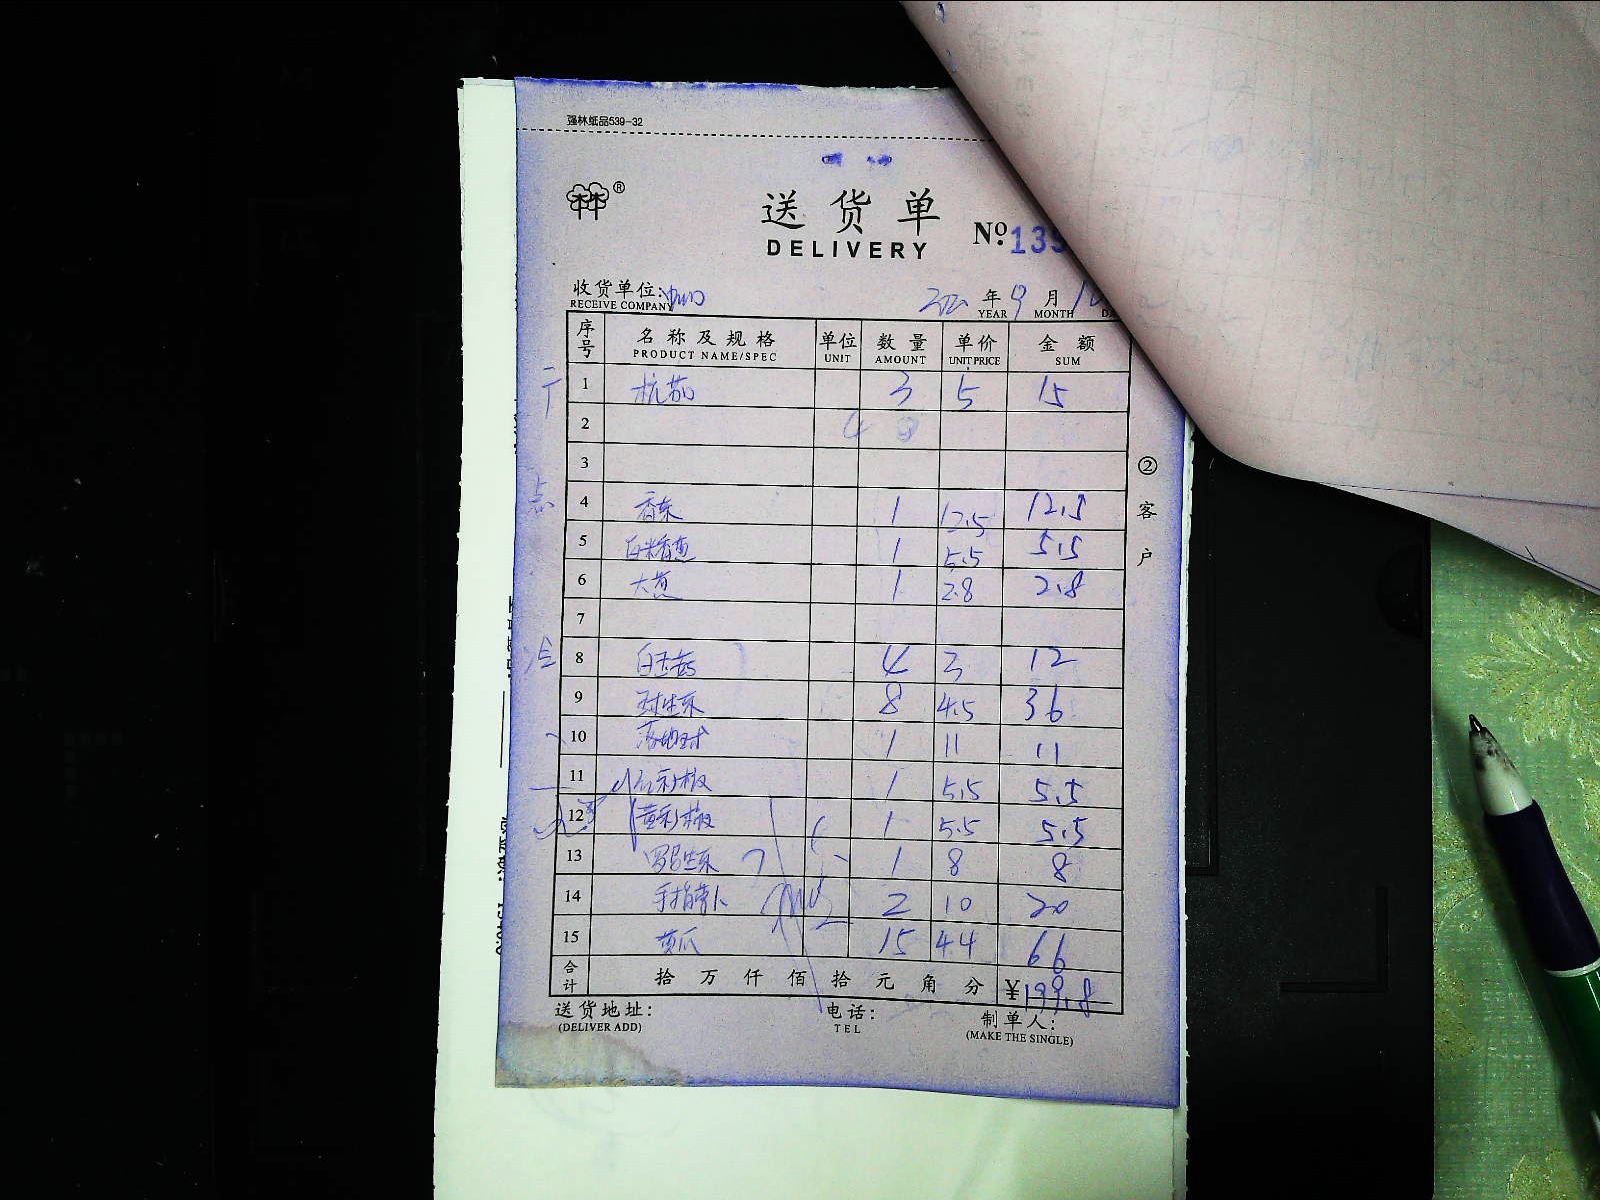 强林纸品539-32
送货单
DELIVERY
№:135
收货单位:
RECEIVE COMPANY
年 9 月
YEAR MONTH
序号 名称及规格 单位 数量 单价 金额
PRODUCT NAME/SPEC UNIT AMOUNT UNIT PRICE SUM
1 杭茄 3 5 15
2
3
4 香菜 1 12.5 12.5
5 1 5.5 5.5
6 大葱 1 2.8 2.8
7
8 白玉菇 4 3 12
9 球生菜 8 4.5 36
10 1 11 11
11 红彩椒 1 5.5 5.5
12 黄彩椒 1 5.5 5.5
13 罗马生菜 1 8 8
14 手指萝卜 2 10 20
15 黄瓜 15 4.4 66
合计 拾 万 仟 佰 拾 元 角 分 ¥199.8
②客户
送货地址: 电话: 制单人:
(DELIVER ADD) TEL (MAKE THE SINGLE)